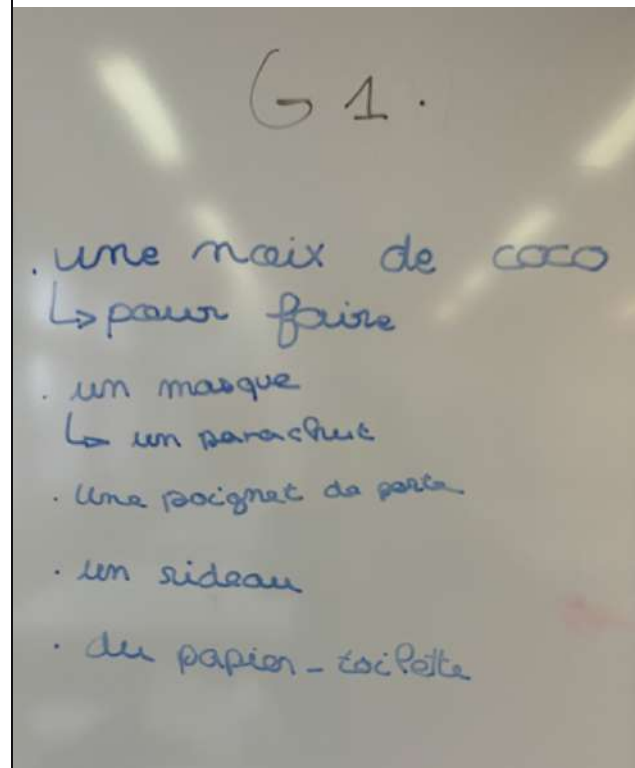 G 1.
. une noix de coco
↳ pour faire
. un masque
↳ un parachut
. Une poignet de porte
. un rideau
. du papier-toilette